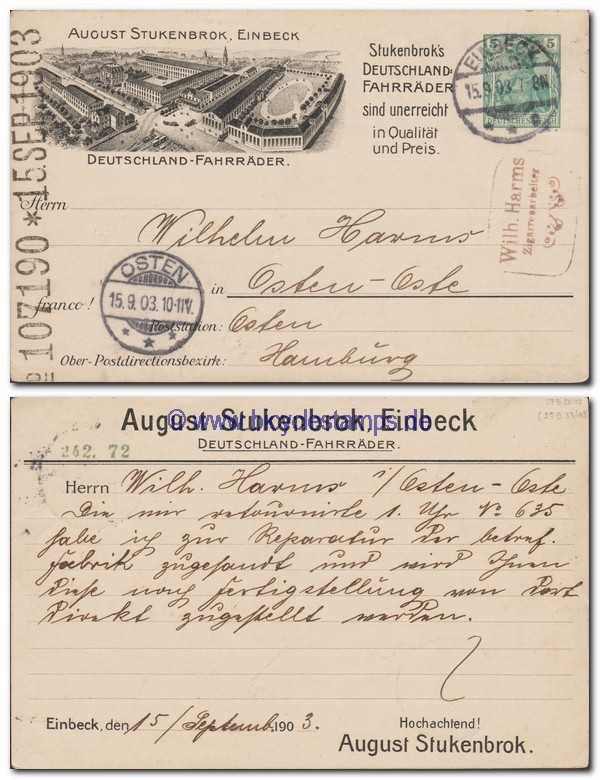 AUGUST STUKENBROK, EINBECK
DEUTSCHLAND-FAHRRÄDER.
Stukenbrok's
DEUTSCHLAND-
FAHRRÄDER
sind unerreicht
in Qualität
und Preis.
5 5
DEUTSCHES REICH
EINBECK
15.9.03.
107190 * 15 SEP. 1903
Herrn
Wilhelm Harms
in Osten-Oste
franco!
Poststation: Osten
Ober-Postdirectionsbezirk: Hamburg
OSTEN
15.9.03.10-11V.
Wilh. Harms
Zigarrenarbeiter
© www.bicyclestamps.de
August Stukenbrok, Einbeck
DEUTSCHLAND-FAHRRÄDER.
242. 72
Herrn Wilh. Harms i/Osten-Oste
Die mir retournirte 1. Uhr No 635
habe ich zur Reparatur der betref.
Fabrik zugesandt und wird Ihnen
diese nach Fertigstellung von dort
direkt zugestellt werden.
Einbeck, den 15/Septemb. 1903.
Hochachtend!
August Stukenbrok.